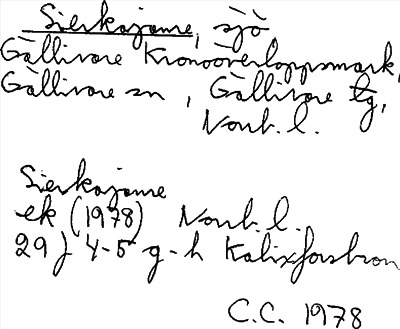 Sierkajaure, sjö
Gällivare Kronoöverloppsmark,
Gällivare sn, Gällivare tg,
Norrb. l.
Sierkajaure
ek (1978) Norrb. l.
29J 4-5 g-h Kalixforsbron
C.C. 1978